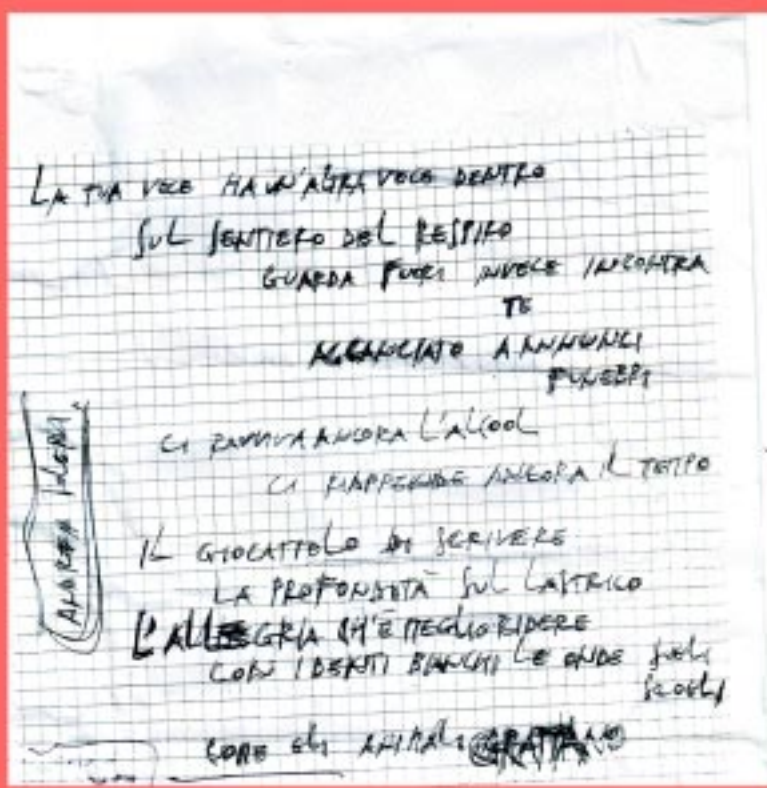 LA TUA VOCE HA UN'ALTRA VOCE DENTRO
SUL SENTIERO DEL RESPIRO
GUARDA FUORI INVECE INCONTRA
TE
AGGANCIATO A ANNUNCI
FUNEBRI
CI RAVVIVA ANCORA L'ALCOOL
CI RIAPPRENDE ANCORA IL TEMPO
IL GIOCATTOLO DI SCRIVERE
LA PROFONDITÀ SUL LASTRICO
L'ALLEGRIA CH'È MEGLIO RIDERE
CON I DENTI BIANCHI LE ONDE SUGLI
SCOGLI
COME GLI ANIMALI GRATTANO
ANDREA